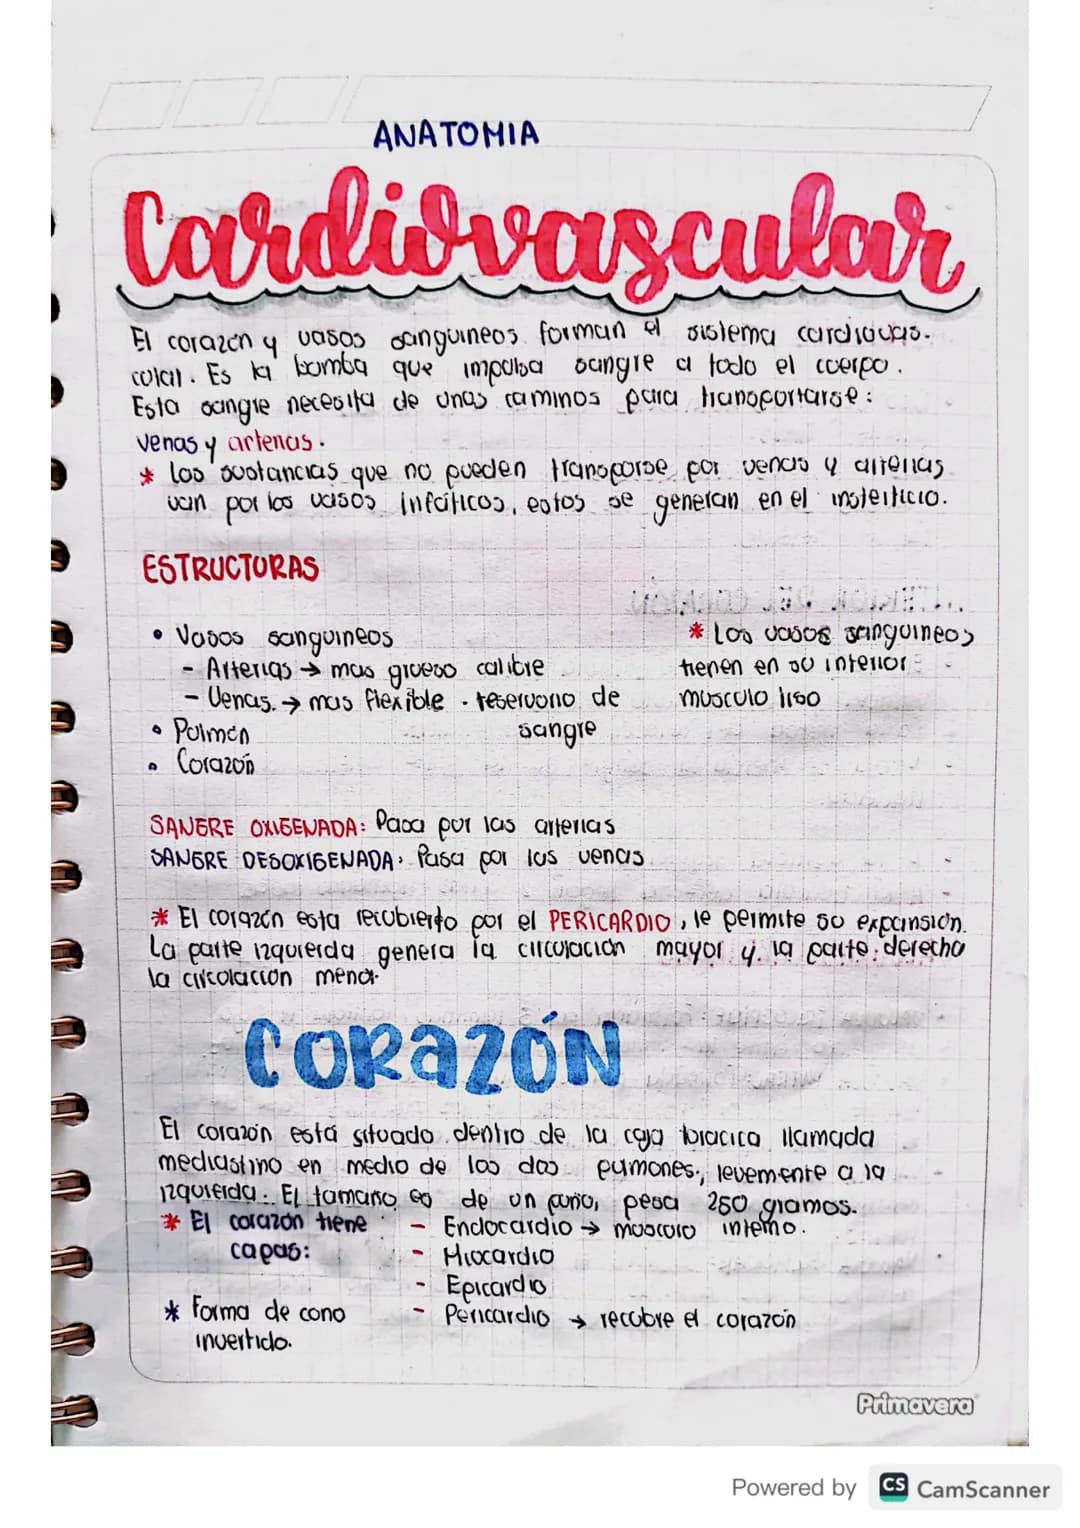 ANATOMIA
Cardiovascular
El corazón y vasos sanguineos forman el sistema cardiovas-
cular. Es la bomba que impulsa sangre a todo el cuerpo.
Esta sangre necesita de unas caminos para transportarse:
venas y arterias.
* Las sustancias que no pueden transporse por venas y arterias
van por los vasos infáticos, estos se generan en el insterticio.
ESTRUCTURAS
• Vasos sanguineos
- Arterias → mas grueso calibre
- Venas. → mas flexible - reservorio de
sangre
• Pulmón
• Corazón
* Los vasos sanguineos
tienen en su interior
musculo liso
SANGRE OXIGENADA: Pasa por las arterias
SANGRE DESOXIGENADA: Pasa por las venas
* El corazón esta recubierto por el PERICARDIO, le permite su expansión.
La parte izquierda genera la circulación mayor y la parte derecha
la circulacion menor.
CORAZÓN
El corazón está situado dentro de la caja toracica llamada
mediastino en medio de los dos pumones., levemente a la
izquierda. El tamano es de un puño, pesa 250 gramos.
* El corazón tiene
capas:
- Endocardio → musculo interno.
- Miocardio
- Epicardio
- Pericardio → recubre el corazón
* Forma de cono
invertido.
Primavera
Powered by CS CamScanner